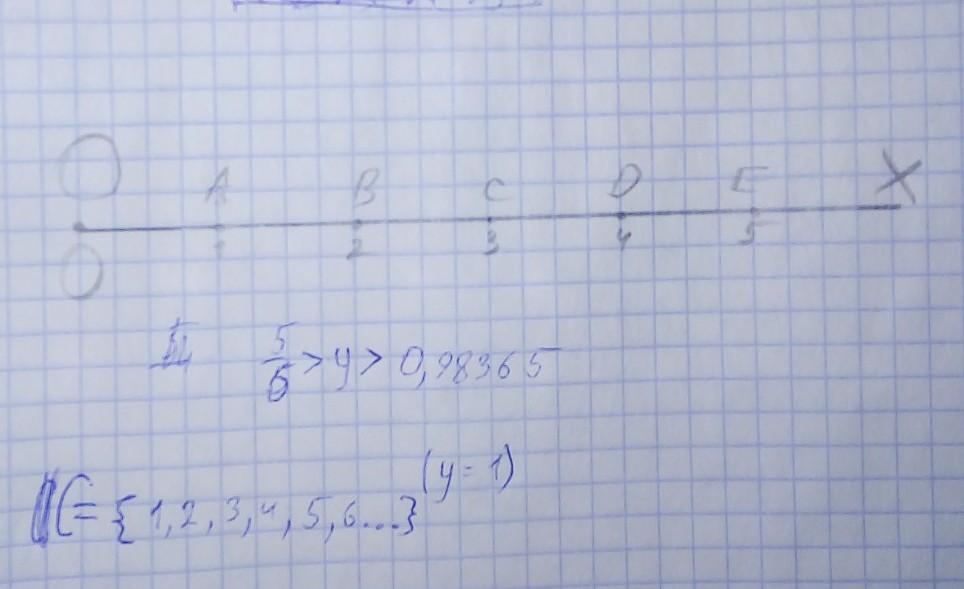 O A B C D E X
O 1 2 3 4 5
5/6 > y > 0,98365
C = {1, 2, 3, 4, 5, 6...} (y = 1)